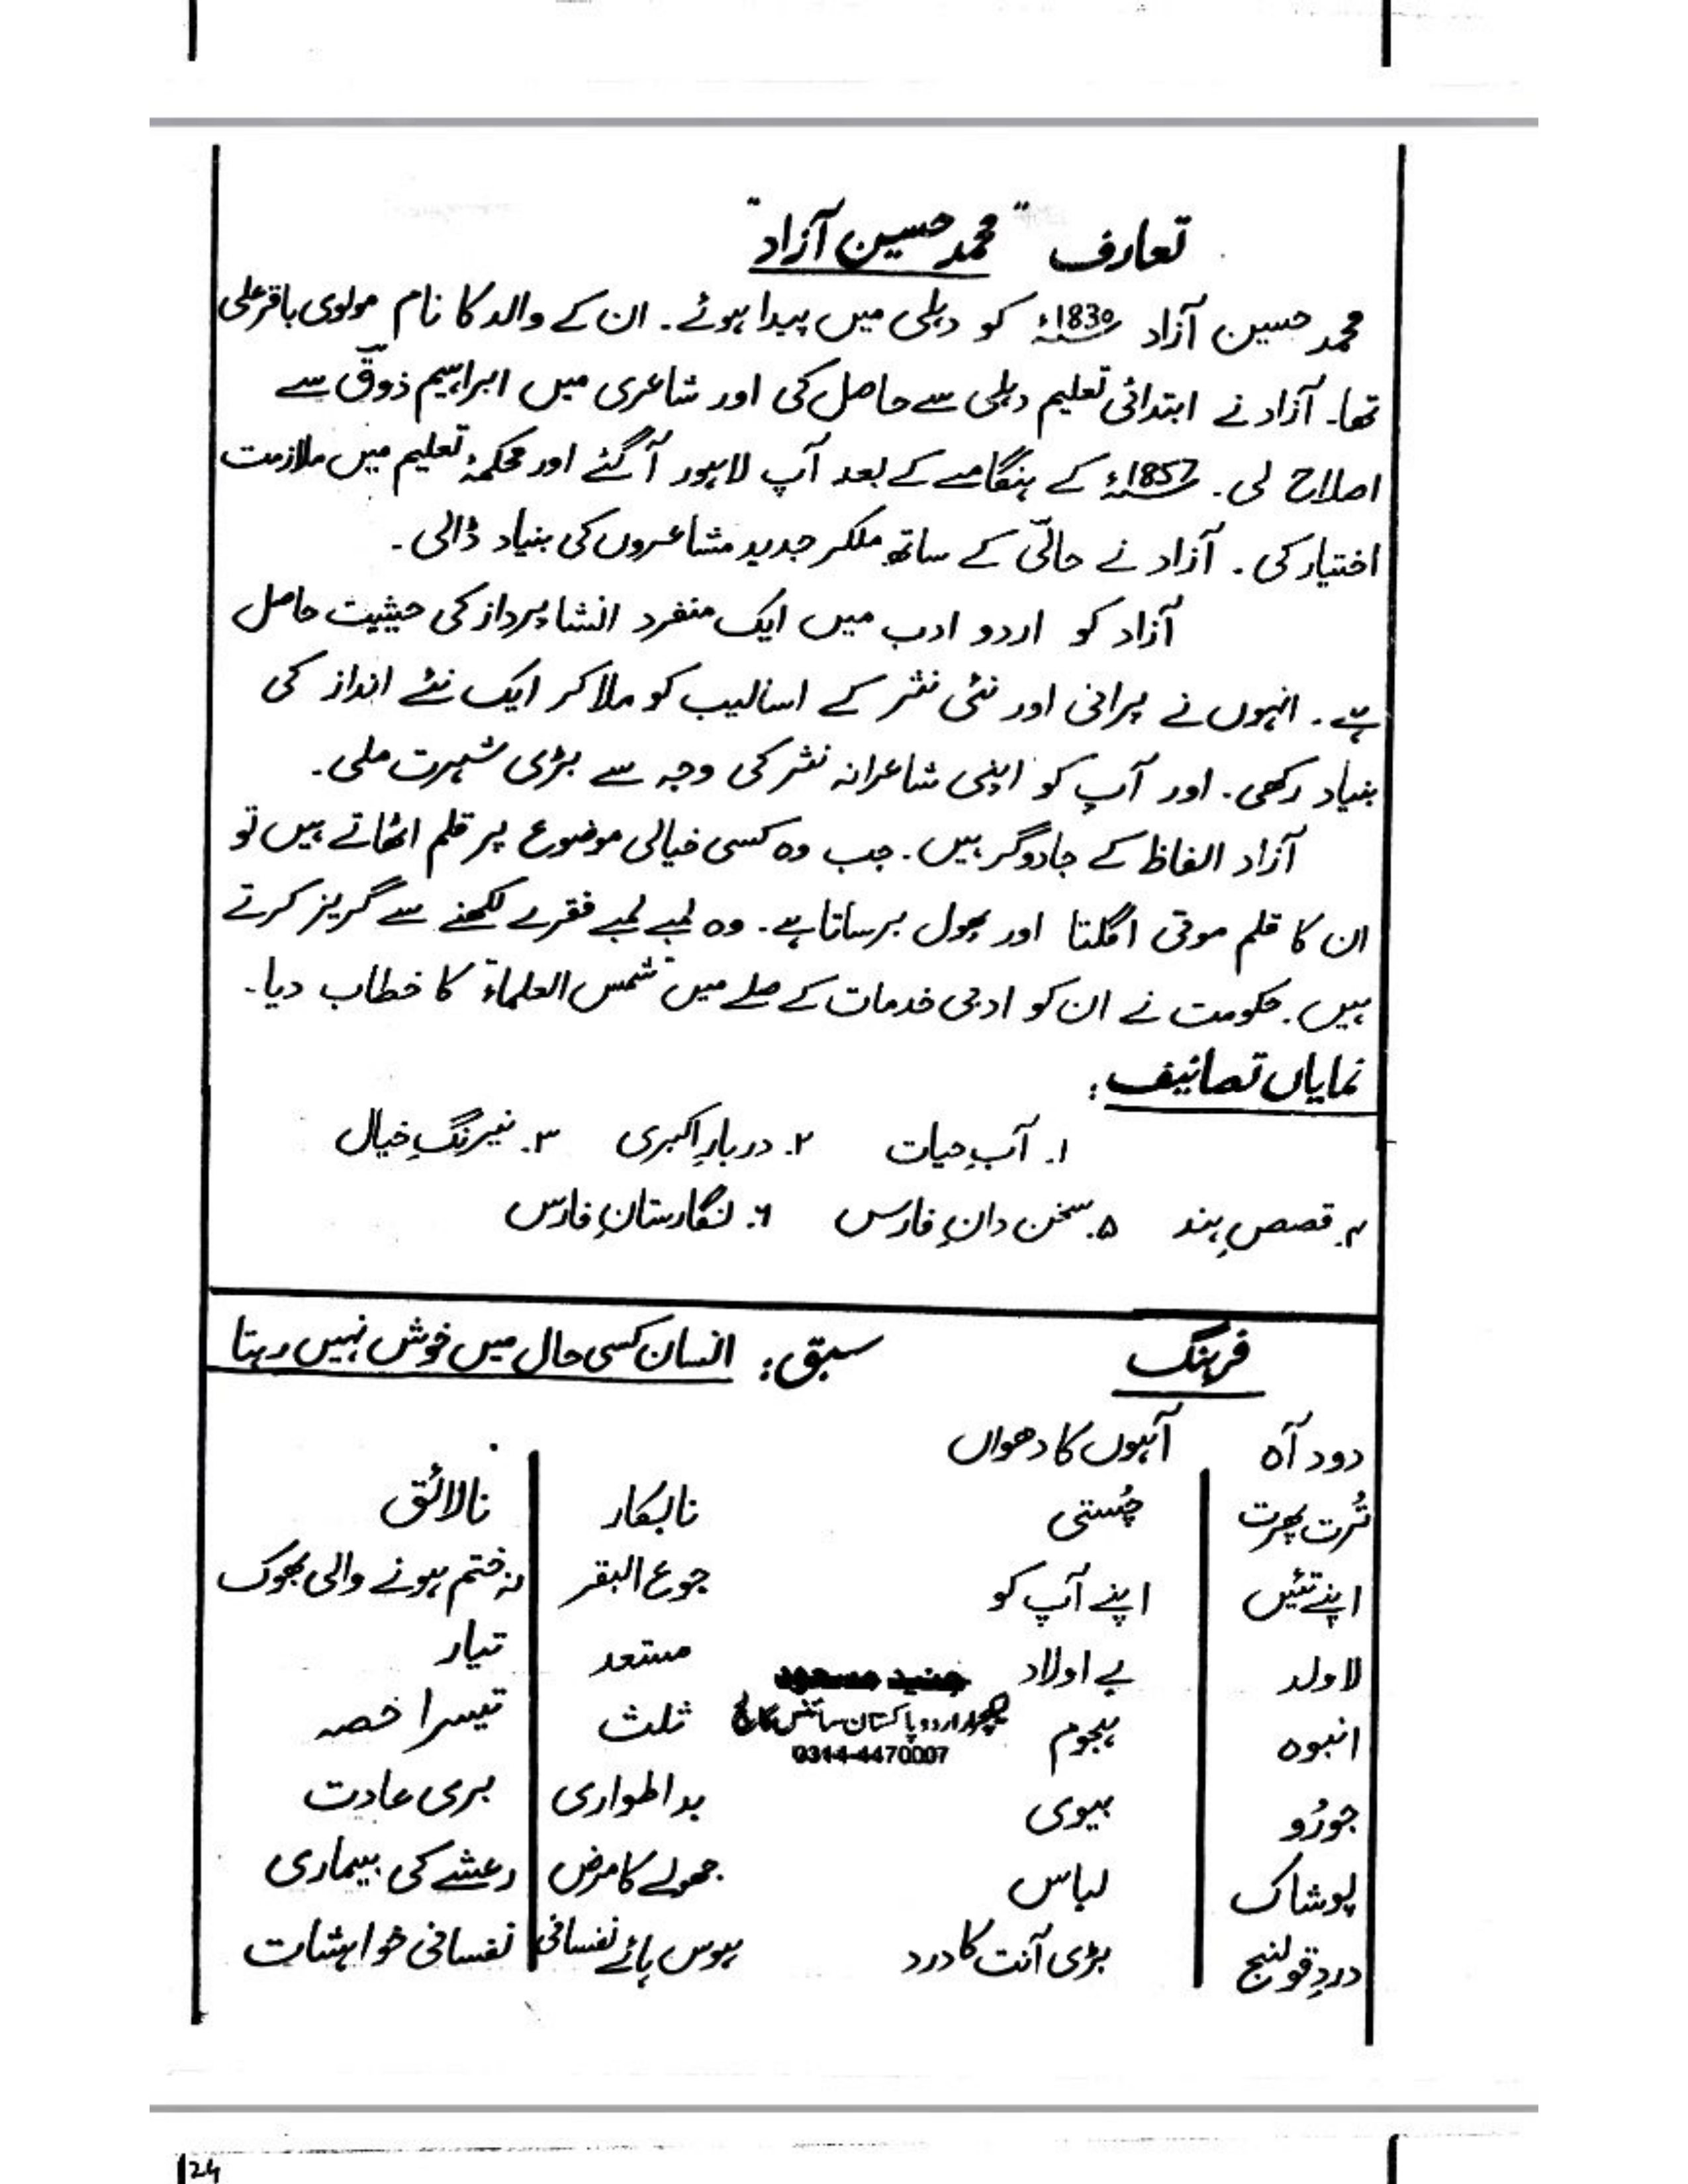 تعارف "محمد حسین آزاد"
محمد حسین آزاد 1830ء کو دہلی میں پیدا ہوئے۔ ان کے والد کا نام مولوی باقر علی
تھا۔ آزاد نے ابتدائی تعلیم دہلی سے حاصل کی اور شاعری میں ابراہیم ذوقؔ سے
اصلاح لی۔ 1857ء کے ہنگامے کے بعد آپ لاہور آ گئے اور محکمۂ تعلیم میں ملازمت
اختیار کی۔ آزاد نے حالیؔ کے ساتھ ملکر جدید مشاعروں کی بنیاد ڈالی۔
آزاد کو اردو ادب میں ایک منفرد انشا پرداز کی حیثیت حاصل
ہے۔ انہوں نے پرانی اور نئی نثر کے اسالیب کو ملا کر ایک نئے انداز کی
بنیاد رکھی۔ اور آپ کو اپنی شاعرانہ نثر کی وجہ سے بڑی شہرت ملی۔
آزاد الفاظ کے جادوگر ہیں۔ جب وہ کسی خیالی موضوع پر قلم اٹھاتے ہیں تو
ان کا قلم موتی اگلتا اور پھول برساتا ہے۔ وہ لمبے لمبے فقرے لکھنے سے گریز کرتے
ہیں۔ حکومت نے ان کو ادبی خدمات کے صلے میں "شمس العلماء" کا خطاب دیا۔
نمایاں تصانیف:
۱۔ آبِ حیات ۲۔ دربارِ اکبری ۳۔ نیرنگِ خیال
۴۔ قصصِ ہند ۵۔ سخن دانِ فارس ۶۔ نگارستانِ فارس
فرہنگ سبق: انسان کسی حال میں خوش نہیں رہتا
دود آہ آہوں کا دھواں
تُرت پھرت چُستی نابکار نالائق
اپنے تئیں اپنے آپ کو جوع البقر نہ ختم ہونے والی بھوک
لا ولد بے اولاد مستعد تیار
جنید مسعود
انبوہ ہجوم ثلث تیسرا حصہ
لیکچرار اردو پاکستان سائنس کالج
0314-4470007
جورُو بیوی بد اطواری بری عادت
پوشاک لباس جھولے کا مرض رعشے کی بیماری
دردِ قولنج بڑی آنت کا درد ہوس ہائے نفسانی نفسانی خواہشات
24